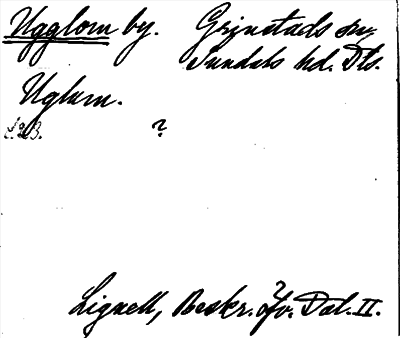 Ugglom by. Grinstads sn,
Sundals hd. Dls.
Uglum.
?
Lignell, Beskr. öfv. Dal. II.